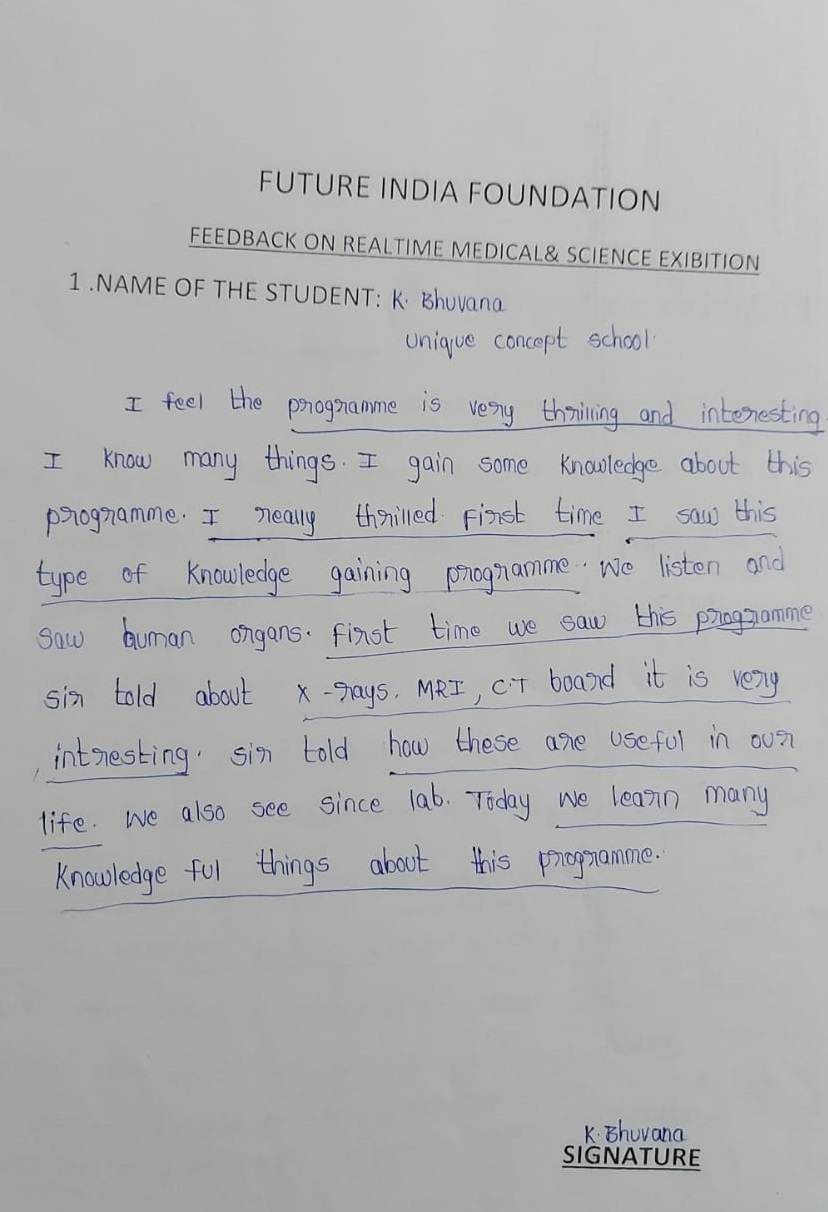 FUTURE INDIA FOUNDATION
FEEDBACK ON REALTIME MEDICAL& SCIENCE EXIBITION
1 .NAME OF THE STUDENT: K. Bhuvana
unique concept school
I feel the programme is very thrilling and interesting.
I know many things. I gain some knowledge about this
programme. I really thrilled. First time I saw this
type of knowledge gaining programme. We listen and
saw human organs. First time we saw this programme
sir told about x-rays, MRI, C.T board it is very
intresting. sir told how these are useful in our
life. We also see since lab. Today we learn many
knowledge ful things about this programme.
K. Bhuvana
SIGNATURE